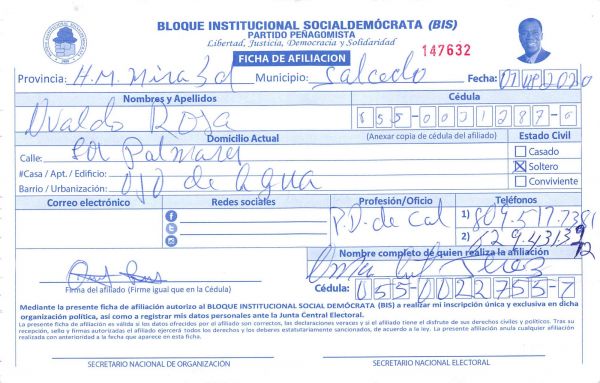 BLOQUE INSTITUCIONAL SOCIALDEMÓCRATA (BIS)
PARTIDO PEÑAGOMISTA
Libertad, Justicia, Democracia y Solidaridad
FICHA DE AFILIACION
147632
Provincia: H.M. Mirabal Municipio: Salcedo Fecha:
Nombres y Apellidos Cédula
Uvaldo Rosa
Domicilio Actual (Anexar copia de cédula del afiliado) Estado Civil
Calle: Los Palmares
Casado
#Casa / Apt. / Edificio:
Soltero
Barrio / Urbanización: Ojo de Agua
Conviviente
Correo electrónico Redes sociales Profesión/Oficio Teléfonos
P.D. de Cal 1) 809.517.7381
2) 829.4313
Nombre completo de quien realiza la afiliación
Firma del afiliado (Firme igual que en la Cédula) Cédula: 055-0022755-7
Mediante la presente ficha de afiliación autorizo al BLOQUE INSTITUCIONAL SOCIAL DEMÓCRATA (BIS) a realizar mi inscripción única y exclusiva en dicha
organización política, así como a registrar mis datos personales ante la Junta Central Electoral.
La presente ficha de afiliación es válida si los datos ofrecidos por el afiliado son correctos, las declaraciones veraces y si el afiliado tiene el disfrute de sus derechos civiles y políticos. Tras su
recepción, sello y firmas autorizadas el afiliado ejercerá todos los derechos y los deberes estatutariamente sancionados, de acuerdo a la ley. La presente afiliación anula cualquier afiliación
realizada con anterioridad a la fecha que aparece en esta ficha.
SECRETARIO NACIONAL DE ORGANIZACIÓN SECRETARIO NACIONAL ELECTORAL